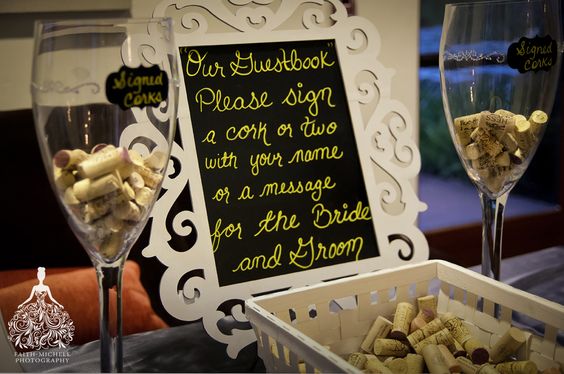 "Our Guestbook"
Please sign
a cork or two
with your name
or a message
for the Bride
and Groom
Signed
Corks
Signed
Corks
FAITH-MICHELL
PHOTOGRAPHY